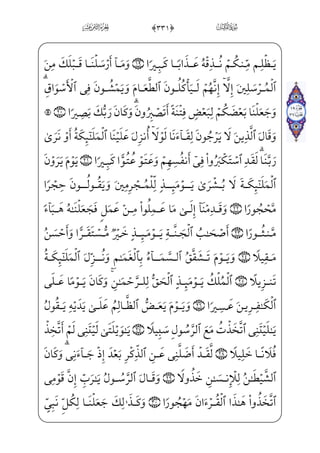 ﴿٣٣١﴾
يَظْلِم مِّنكُمْ نُذِقْهُ عَذَابًا كَبِيرًا ۝ وَمَآ أَرْسَلْنَا قَبْلَكَ مِنَ
ٱلْمُرْسَلِينَ إِلَّآ إِنَّهُمْ لَيَأْكُلُونَ ٱلطَّعَامَ وَيَمْشُونَ فِى ٱلْأَسْوَاقِ ۗ
وَجَعَلْنَا بَعْضَكُمْ لِبَعْضٍ فِتْنَةً أَتَصْبِرُونَ ۗ وَكَانَ رَبُّكَ بَصِيرًا ۝ ۞
وَقَالَ ٱلَّذِينَ لَا يَرْجُونَ لِقَآءَنَا لَوْلَآ أُنزِلَ عَلَيْنَا ٱلْمَلَٰٓئِكَةُ أَوْ نَرَىٰ
رَبَّنَا ۗ لَقَدِ ٱسْتَكْبَرُوا۟ فِىٓ أَنفُسِهِمْ وَعَتَوْ عُتُوًّا كَبِيرًا ۝ يَوْمَ يَرَوْنَ
ٱلْمَلَٰٓئِكَةَ لَا بُشْرَىٰ يَوْمَئِذٍ لِّلْمُجْرِمِينَ وَيَقُولُونَ حِجْرًا
مَّحْجُورًا ۝ وَقَدِمْنَآ إِلَىٰ مَا عَمِلُوا۟ مِنْ عَمَلٍ فَجَعَلْنَٰهُ هَبَآءً
مَّنثُورًا ۝ أَصْحَٰبُ ٱلْجَنَّةِ يَوْمَئِذٍ خَيْرٌ مُّسْتَقَرًّا وَأَحْسَنُ
مَقِيلًا ۝ وَيَوْمَ تَشَقَّقُ ٱلسَّمَآءُ بِٱلْغَمَٰمِ وَنُزِّلَ ٱلْمَلَٰٓئِكَةُ
تَنزِيلًا ۝ ٱلْمُلْكُ يَوْمَئِذٍ ٱلْحَقُّ لِلرَّحْمَٰنِ ۚ وَكَانَ يَوْمًا عَلَى
ٱلْكَٰفِرِينَ عَسِيرًا ۝ وَيَوْمَ يَعَضُّ ٱلظَّالِمُ عَلَىٰ يَدَيْهِ يَقُولُ
يَٰلَيْتَنِى ٱتَّخَذْتُ مَعَ ٱلرَّسُولِ سَبِيلًا ۝ يَٰوَيْلَتَىٰ لَيْتَنِى لَمْ أَتَّخِذْ
فُلَانًا خَلِيلًا ۝ لَّقَدْ أَضَلَّنِى عَنِ ٱلذِّكْرِ بَعْدَ إِذْ جَآءَنِى ۗ وَكَانَ
ٱلشَّيْطَٰنُ لِلْإِنسَٰنِ خَذُولًا ۝ وَقَالَ ٱلرَّسُولُ يَٰرَبِّ إِنَّ قَوْمِى
ٱتَّخَذُوا۟ هَٰذَا ٱلْقُرْءَانَ مَهْجُورًا ۝ وَكَذَٰلِكَ جَعَلْنَا لِكُلِّ نَبِىٍّ